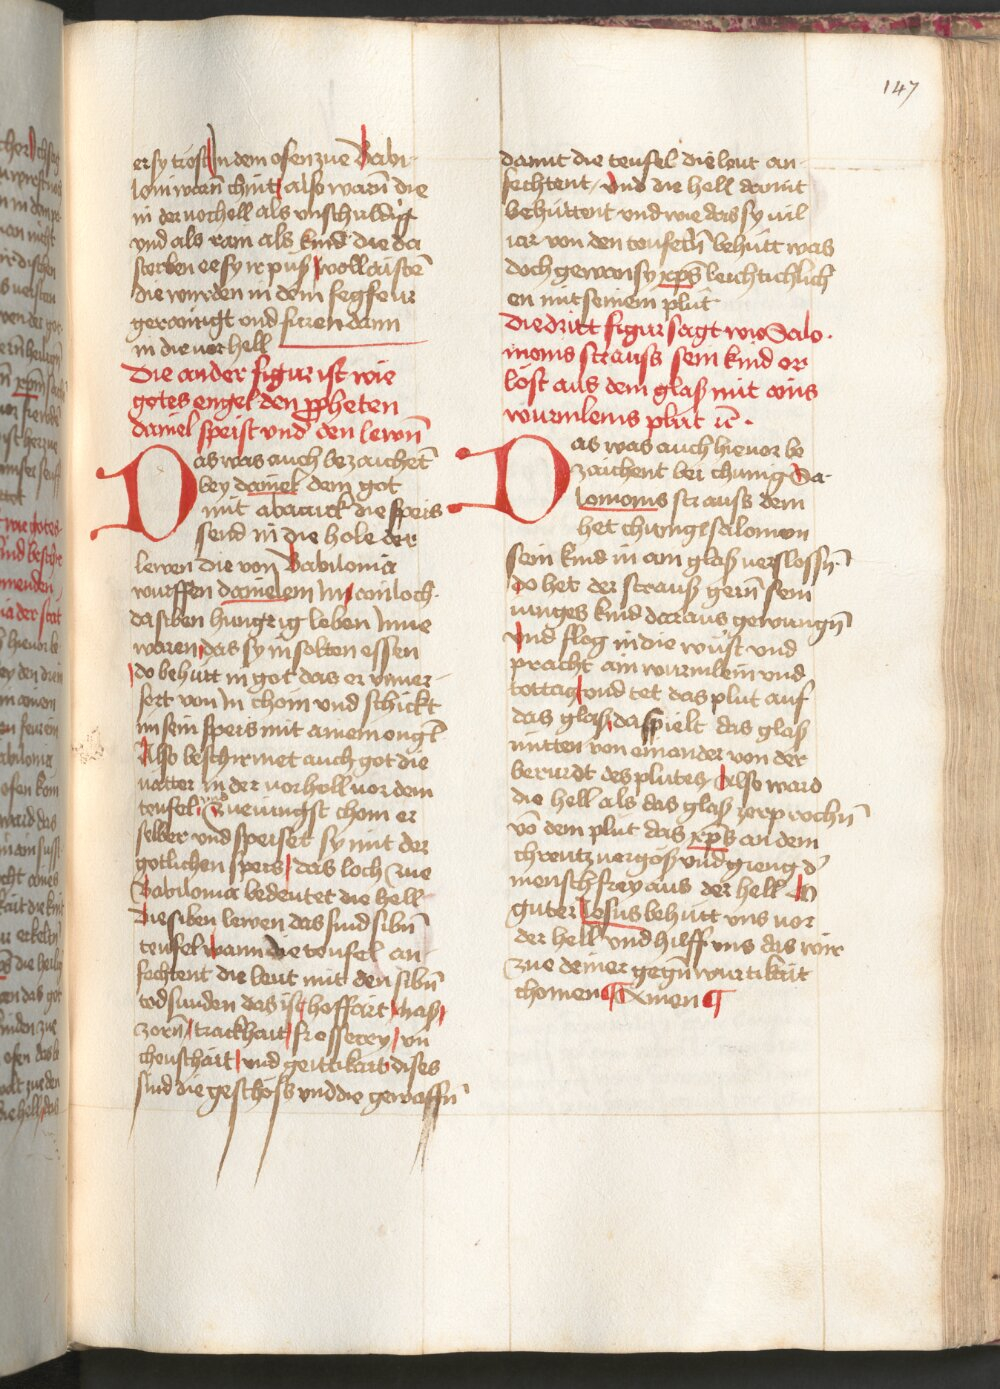 147
er sy trost in dem ofen zue Babi-
loni waren chint also warn̄ die
in der vorhell als vnschuldig
vnd als rain als kind die da
sterben ee sy ir puͤß wollaisten̄
die wurden in dem fegfeur
gerainigt vnd furen dann
in die vorhell
Die ander figur ist wie
gotes engel den ꝓpheten
daniel speist vnd den lewn̄
Das was auch bezaichet̄
bey daniel dem got
mit abacuck die speis
send in die hole der
lewen die von Babilonia
wurffen danielem in ain loch
da siben hungrig leben Inne
waren das sy in solten essen
do behutt in got das er vnuer-
sert von in chom vnd schickt
im sein speis mit ainem engl̄
Also beschirmet auch got die
vatter in der vorhell vor dem
teufel Zue iungst chom er
selber vnd speiset sy mit der
gotlichen speis das loch zue
Babilonia bedeutet die hell
Die siben lewen das sind sibn̄
teufel wann die teufel an-
fechtent die leut mit den sibn̄
todsunden das ist hoffart haß
zorn̄ trackhait frosserey vn̄
cheuschait vnd geittikait dises
sind die geschoss vnd die gewaffn̄
damit die teufel die leut an-
fechtent vnd die hell damit
behuttent vnd wie das sy vil
iar von den teufeln̄ behutt was
doch gewan sy xp̄s leichtichlich
en mit seinem plut
Die dritt figur sagt wie Salo-
mons strauss sein kind er
lost aus dem glaß mit ains
wurmleins plut ꝛc̄.
Das was auch hievor be
zaichent bei chunig Sa-
lomonis strauss dem
het chunig salomon
sein kind in ain glaß verslossn̄
do het der strauß gern̄ sein
iunges kind daraus gewungn̄
vnd flog in die wust vnd
pracht ain wurmlein vnd
tottag vnd tet das plut auf
das glaß da spielt das glaß
mitten von einander von der
berurdt des plutes Also ward
die hell als das glaß zerprochn̄
vō dem plut das xp̄s an dem
chreutz vergoß vnd gieng d'
mensch frey aus der hell O
guter Jesus behutt vns vor
der hell vnd hilff vns das wir
zue deiner gegn̄wurtikait
chomen ¶ Amen ¶